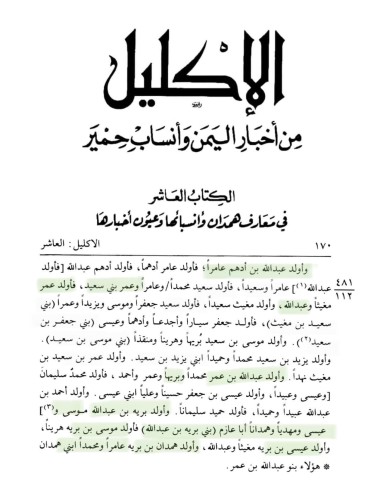 الإكليل
مِن أخبار اليمن وأنساب حِمْيَر
الكتاب العاشر
في معارف همدان وأنسابها وعيون أخبارها
١٧٠
الاكليل: العاشر
وأولد عبدالله بن أدهم عامراً؛ فأولد عامر أدهماً، فأولد أدهم عبدالله [فأولد
عبدالله(١)] عامراً وسعيداً، فأولد سعيد محمداً/وعامراً وعمر بني سعيد، فأولد عمر
٤٨١
١١٢
مغيثاً وعبدالله، وأولد مغيث سعيداً، فأولد سعيد جعفراً وموسى ويزيداً وعمراً (بني
سعيد بن مغيث)، فأولد جعفر سياراً وأجدعاً وأدهماً وعيسى (بني جعفر بن
سعيد(٢)). وأولد موسى بن سعيد بُريهاً وهريناً ومنقذاً (بني موسى بن سعيد).
وأولد يزيد بن سعيد محمداً وحميداً ابني يزيد بن سعيد. وأولد عمر بن سعيد بن
مغيث نهداً. وأولد عبدالله بن عمر محمداً وبريهاً وعمر وأحمد، فأولد محمد سليمان
[وعيسى وعبيداً، وأولد عيسى بن جعفر حسيناً وعلياً ابني عيسى. وأولد أحمد بن
عبدالله عبيداً وحميداً، فأولد حميد سليماناً. وأولد بريه بن عبدالله موسى و(٣)]
عيسى ومهدياً وهمداناً أبا عازم (بني بريه بن عبدالله) فأولد موسى بن بريه هريناً،
وأولد عيسى بن بريه مغيثاً وعبدالله، وأولد همدان بن بريه عامراً ومحمداً ابني همدان
* هؤلاء بنو عبدالله بن عمر.